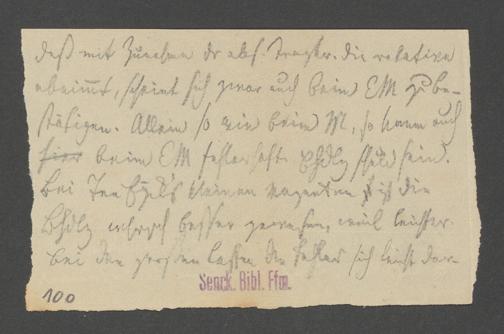 daß mit Zunahme dr abs. Tragkr. die relative
abnimmt, scheint sich zwar auch beim EM zu be-
stätigen. Allein so wie beim M, so kann auch
hier beim EM fehlerhafte schuld sein.
Bei kleinen Magneten ist die
besser gewesen, weil leichter.
Bei den großen lassen die Fehler sich leicht
Senck. Bibl. Ffm.
100